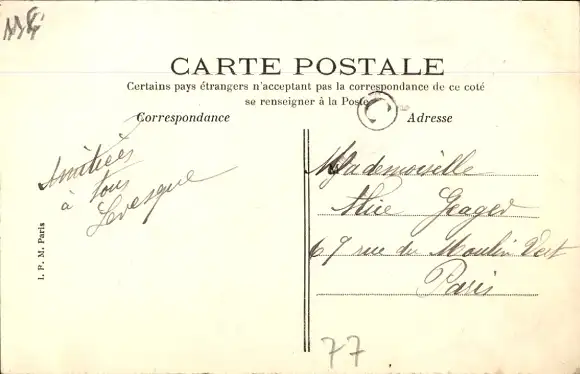 CARTE POSTALE
Certains pays étrangers n'acceptant pas la correspondance de ce coté
se renseigner à la Poste
C
Correspondance
Adresse
Amitiées
à tous
Levesque
Mademoiselle
Alice Geager
69 rue du Moulin Vert
Paris
I. P. M. Paris
77